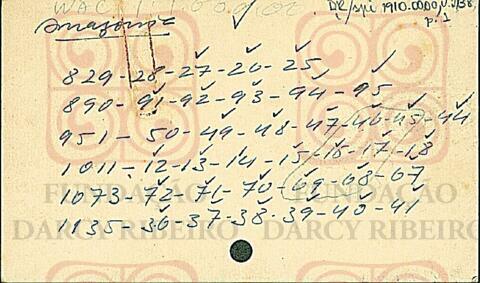 DR/spi 1910.00.00/
p. 1
Amazonas
829-28-27-26-25
890-91-92-93-94-95
951-50-49-48-47-46-45-44
1011-12-13-14-15-16-17-18
1073-72-71-70-69-68-67
1135-36-37-38-39-40-41
FUNDAÇÃO FUNDAÇÃO
DARCY RIBEIRO DARCY RIBEIRO